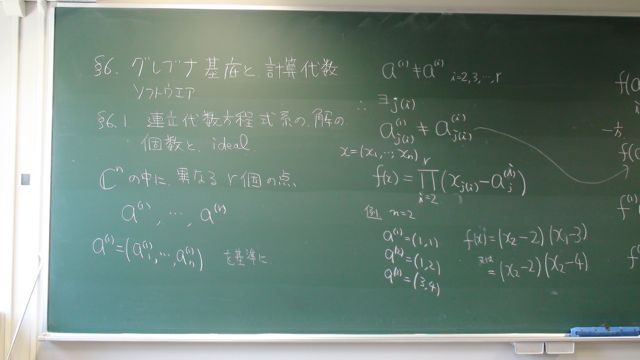 §6. グレブナ基底と計算代数
ソフトウエア
§6.1 連立代数方程式系の解の
個数と ideal
ℂⁿの中に異なる r個の点
a⁽¹⁾, …, a⁽ʳ⁾
a⁽ⁱ⁾=(a₁⁽ⁱ⁾, …, aₙ⁽ⁱ⁾) を基準に
a⁽¹⁾≠a⁽ⁱ⁾ i=2,3,…,r
∴ ∃j(i)
a_{j(i)}^{(1)} ≠ a_{j(i)}^{(i)}
x=(x₁, …, xₙ)
f(x)=∏_{i=2}^{r}(x_{j(i)}-a_{j}^{i})
例 n=2
a⁽¹⁾=(1,1)
a⁽²⁾=(1,2)
a⁽³⁾=(3,4)
f(x)=(x₂-2)(x₁-3)
=(x₂-2)(x₂-4)
f(a
f(a
f⁽¹⁾
f⁽